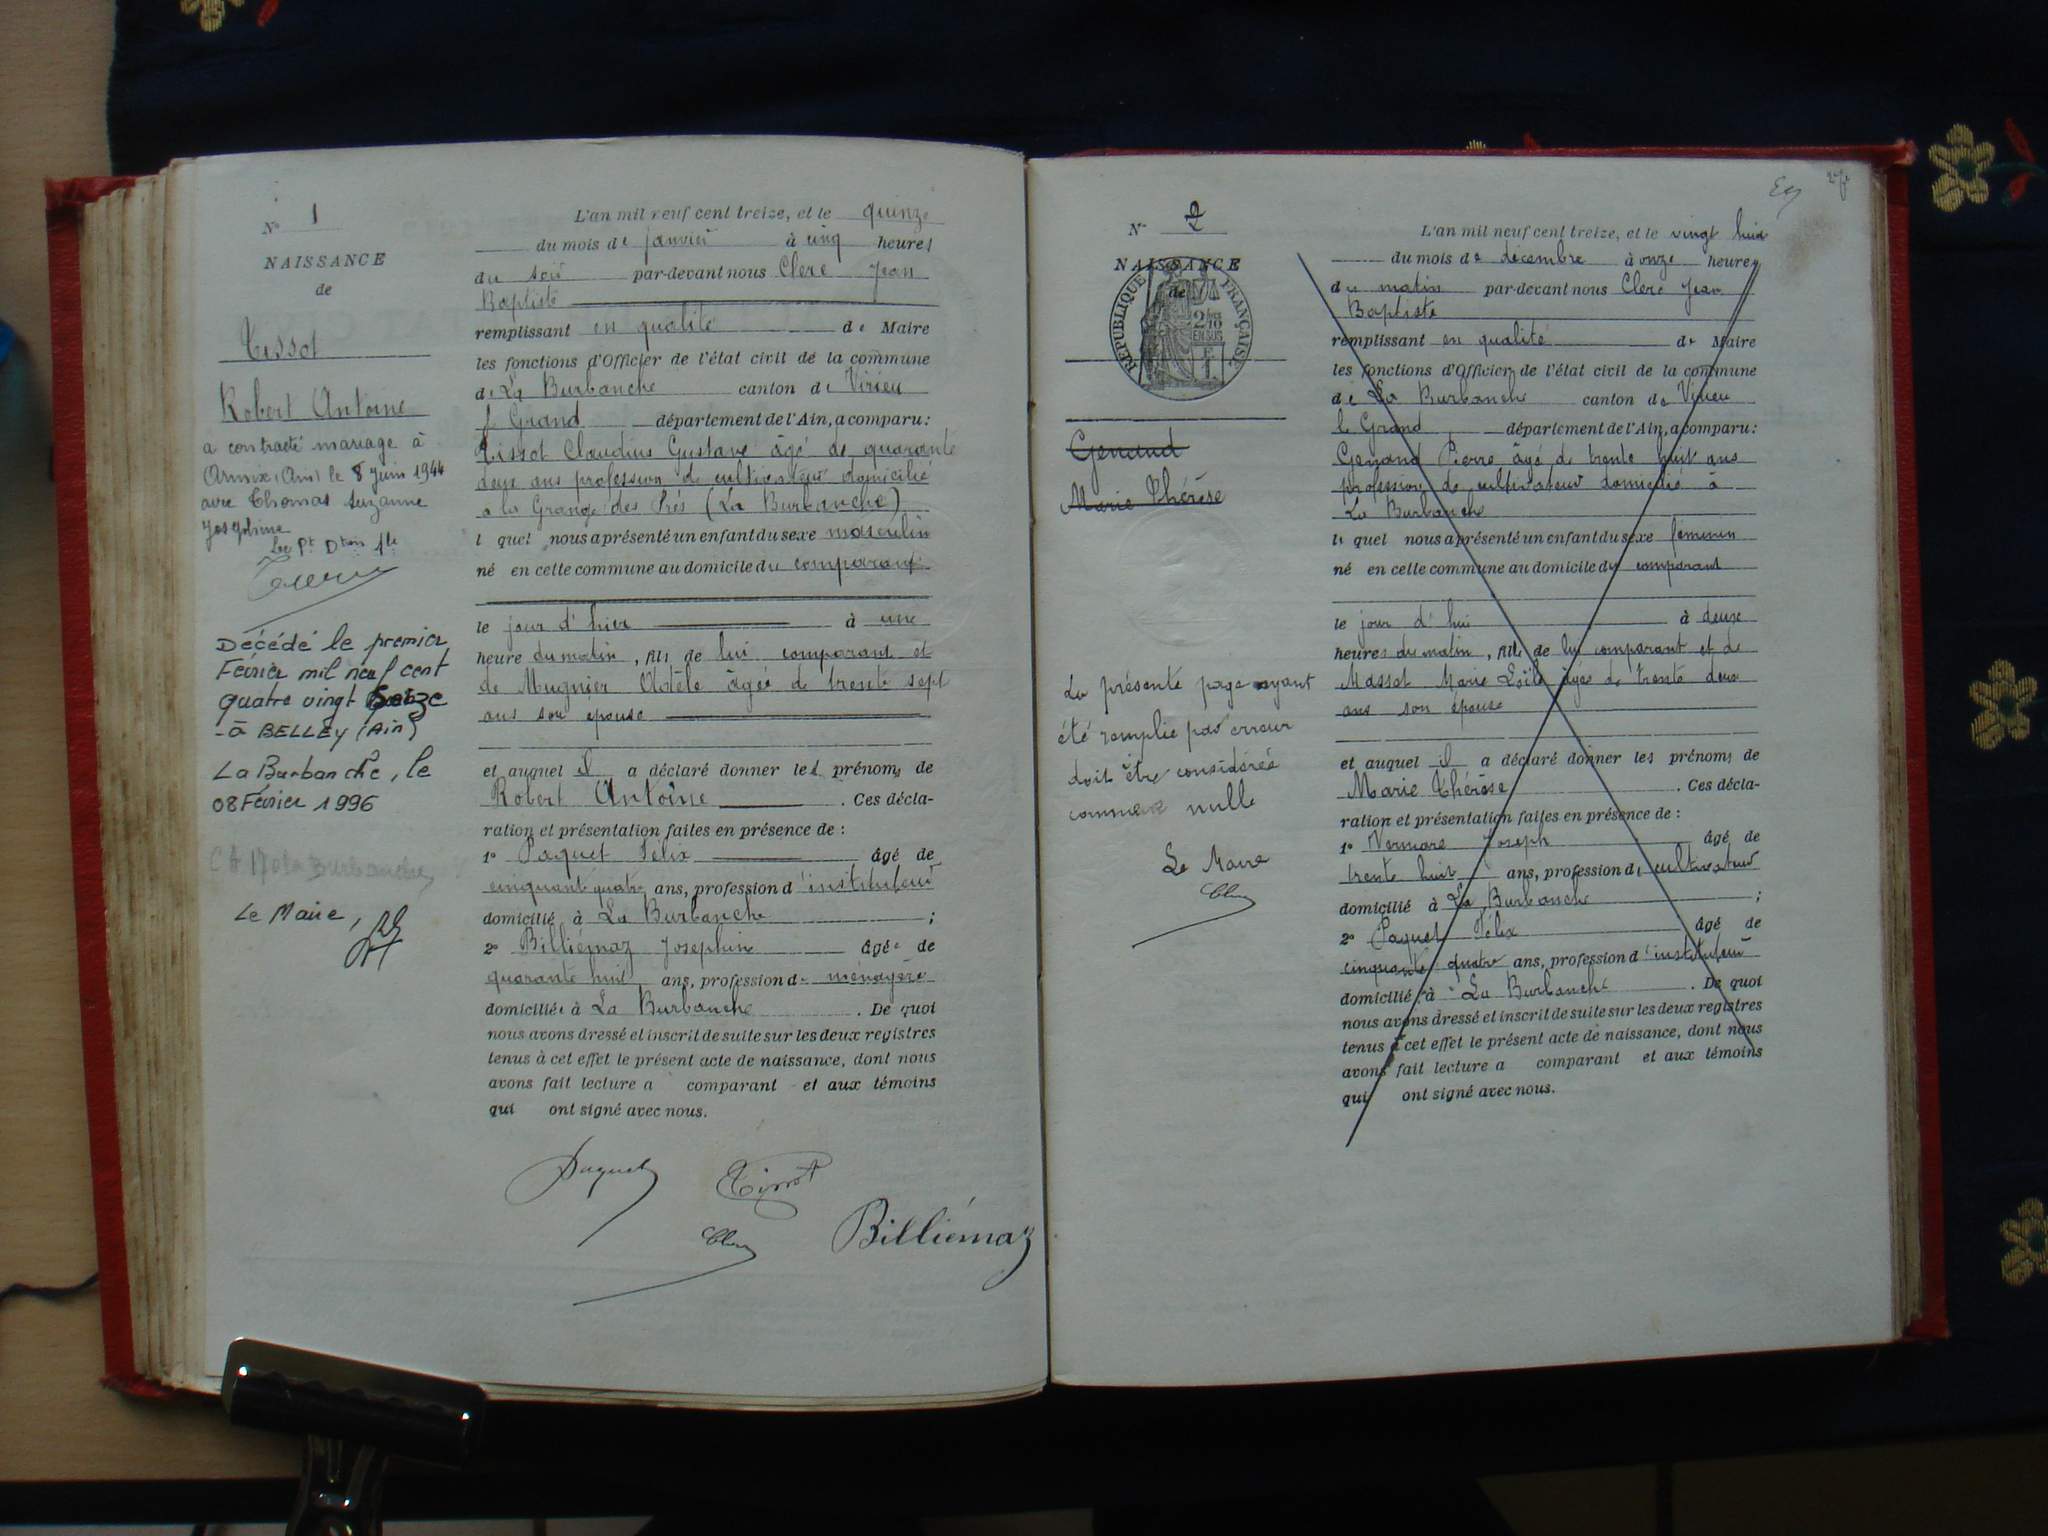 N° 1
NAISSANCE
de
Tissot
Robert Antoine
a contracté mariage à
Armix (Ain) le 8 juin 1944
avec Thomas Suzanne
Joséphine
Décédé le premier
Février mil neuf cent
quatre vingt seize
-à BELLEY (Ain)
La Burbanche, le
08 Février 1996
Le Maire,
L'an mil neuf cent treize, et le quinze
du mois de janvier à cinq heures
du soir par-devant nous Clerc Jean
Baptiste
remplissant en qualité de Maire
les fonctions d'Officier de l'état civil de la commune
de La Burbanche canton de Virieu
le Grand département de l'Ain, a comparu:
Tissot Claudius Gustave âgé de quarante
deux ans profession de cultivateur domicilié
a la Grange des Prés (La Burbanche)
l quel nous a présenté un enfant du sexe masculin
né en cette commune au domicile du comparant
le jour d'hier à une
heure du matin, fils de lui comparant et
de Mugnier âgée de trente sept
ans son épouse
et auquel il a déclaré donner les prénoms de
Robert Antoine . Ces décla-
ration et présentation faites en présence de :
1° Paquet Félix âgé de
cinquante quatre ans, profession d'instituteur
domicilié à La Burbanche ;
2° Billiémaz Joséphine âgée de
quarante huit ans, profession de ménagère
domiciliée à La Burbanche . De quoi
nous avons dressé et inscrit de suite sur les deux registres
tenus à cet effet le présent acte de naissance, dont nous
avons fait lecture a comparant et aux témoins
qui ont signé avec nous.
Paquet Tissot
Billiémaz
N° 2
NAISSANCE
de
REPUBLIQUE FRANÇAISE
2/10
EN SUS
Genand
Marie Thérèse
La présente page ayant
été remplie par erreur
doit être considérée
comme nulle
Le Maire
L'an mil neuf cent treize, et le vingt huit
du mois de décembre à onze heures
du matin par-devant nous Clerc Jean
Baptiste
remplissant en qualité de Maire
les fonctions d'Officier de l'état civil de la commune
de La Burbanche canton de Virieu
le Grand département de l'Ain, a comparu:
Genand Pierre âgé de trente huit ans
profession de cultivateur domicilié à
La Burbanche
le quel nous a présenté un enfant du sexe féminin
né en cette commune au domicile du comparant
le jour d'hui à deux
heures du matin, fille de lui comparant et de
Massot Marie âgée de trente deux
ans son épouse
et auquel il a déclaré donner les prénoms de
Marie Thérèse . Ces décla-
ration et présentation faites en présence de :
1° Vermare Joseph âgé de
trente huit ans, profession de cultivateur
domicilié à La Burbanche ;
2° Paquet Félix âgé de
cinquante quatre ans, profession d'instituteur
domicilié à La Burbanche . De quoi
nous avons dressé et inscrit de suite sur les deux registres
tenus à cet effet le présent acte de naissance, dont nous
avons fait lecture a comparant et aux témoins
qui ont signé avec nous.